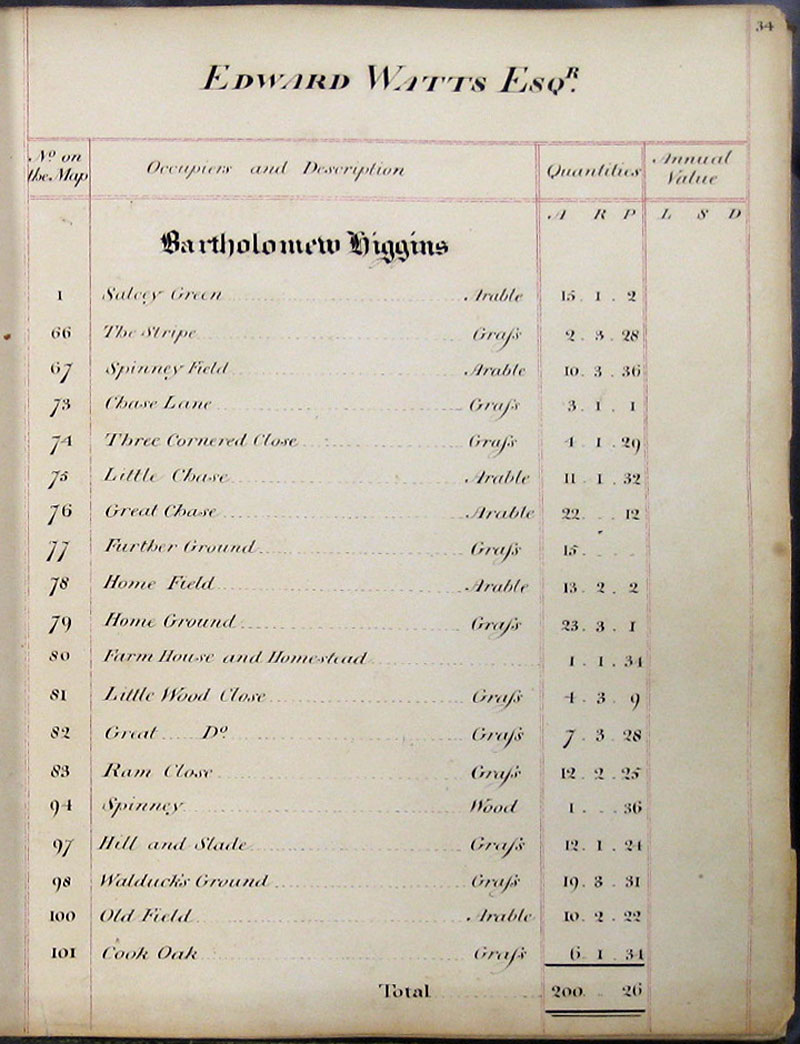 34
EDWARD WATTS ESQR.
No on the Map
Occupiers and Description
Quantities
Annual Value
A R P L S D
Bartholomew Higgins
1 Salcey Green Arable 15 . 1 . 2
66 The Stripe Graſs 2 . 3 . 28
67 Spinney Field Arable 10 . 3 . 36
73 Chase Lane Graſs 3 . 1 . 1
74 Three Cornered Close Graſs 4 . 1 . 29
75 Little Chase Arable 11 . 1 . 32
76 Great Chase Arable 22 . . 12
77 Further Ground Graſs 15 . . .
78 Home Field Arable 13 . 2 . 2
79 Home Ground Graſs 23 . 3 . 1
80 Farm House and Homestead 1 . 1 . 34
81 Little Wood Close Graſs 4 . 3 . 9
82 Great Do Graſs 7 . 3 . 28
83 Ram Close Graſs 12 . 2 . 25
94 Spinney Wood 1 . . . 36
97 Hill and Slade Graſs 12 . 1 . 24
98 Walduck's Ground Graſs 19 . 3 . 31
100 Old Field Arable 10 . 2 . 22
101 Cook Oak Graſs 6 . 1 . 34
Total 200 . . 26